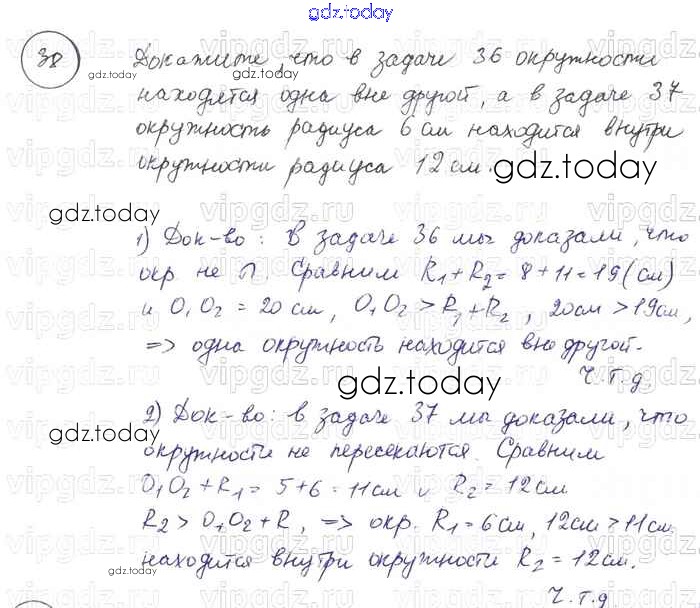 gdz.today
38 Докажите, что в задаче 36 окружности
gdz.today
находятся одна вне другой, а в задаче 37
окружность радиуса 6 см находится внутри
окружности радиуса 12 см.
gdz.today
gdz.today
1) Док-во: В задаче 36 мы доказали, что
окр. не ∩. Сравним R₁+R₂=8+11=19(см)
и O₁O₂=20см, O₁O₂>R₁+R₂, 20см>19см,
=> одна окружность находится вне другой.
Ч.т.д.
gdz.today
2) Док-во: в задаче 37 мы доказали, что
gdz.today
окружности не пересекаются. Сравним
O₁O₂+R₁=5+6=11см и R₂=12см
R₂>O₁O₂+R₁ => окр. R₁=6см, 12см>11см
находится внутри окружности R₂=12см.
gdz.today
Ч.т.д
vipgdz.ru